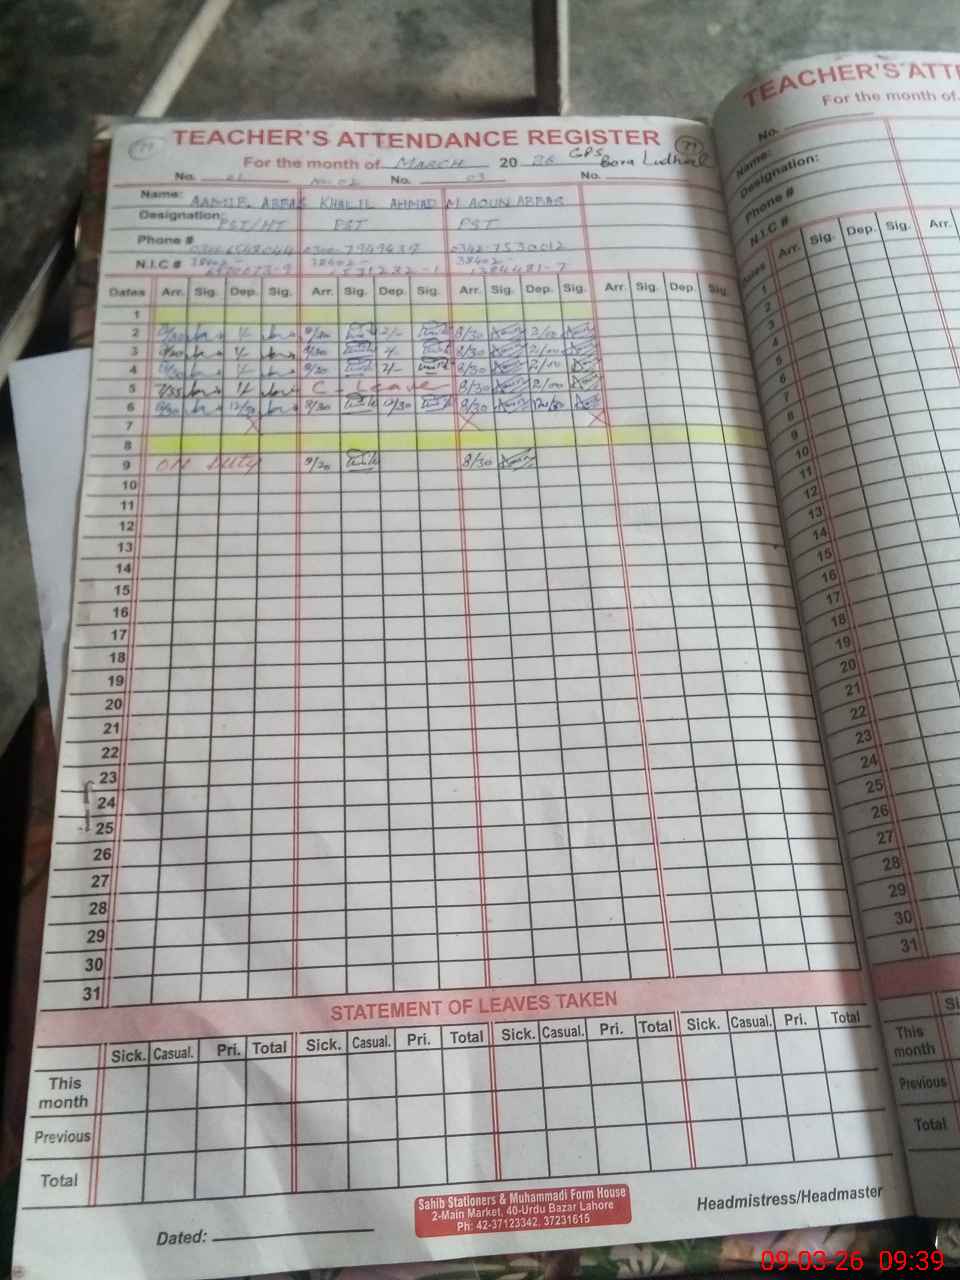 TEACHER'S ATTENDANCE REGISTER
For the month of MARCH 20 26 GPS Bora Ludhral
No. 01 No. 02 No. 03 No.
Name: AAMIR ABBAS KHALIL AHMAD M. AOUN ABBAS
Designation: PST/HT PST PST
Phone # 0342-7530012
N.I.C # 38402- 38402- 38402-
Dates Arr. Sig. Dep. Sig. Arr. Sig. Dep. Sig. Arr. Sig. Dep. Sig. Arr. Sig. Dep. Sig.
1
2 8/30
3 8/30 2/00
4 8/30 2/00
5 C - Leave 8/30 2/00
6 8/30
7
8
9 ON DUTY 8/30
10
11
12
13
14
15
16
17
18
19
20
21
22
23
24
25
26
27
28
29
30
31
STATEMENT OF LEAVES TAKEN
Sick. Casual. Pri. Total Sick. Casual. Pri. Total Sick. Casual. Pri. Total Sick. Casual. Pri. Total
This month
Previous
Total
Dated:
Sahib Stationers & Muhammadi Form House
2-Main Market, 40-Urdu Bazar Lahore
Ph: 42-37123342, 37231615
Headmistress/Headmaster
TEACHER'S ATTE
For the month of
No.
Name:
Designation:
Phone #
N.I.C #
Arr. Sig. Dep. Sig. Arr.
1
2
3
4
5
6
7
8
9
10
11
12
13
14
15
16
17
18
19
20
21
22
23
24
25
26
27
28
29
30
31
This month
Previous
Total
09-03-26 09:39